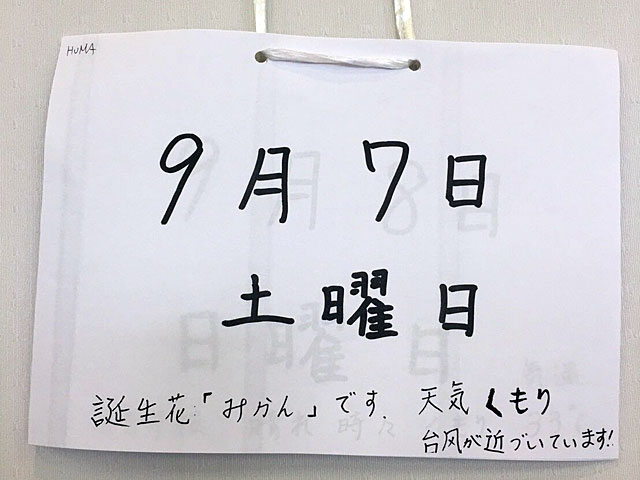 HUMA
9月7日
土曜日
誕生花:「みかん」です. 天気 くもり
台風が近づいています!